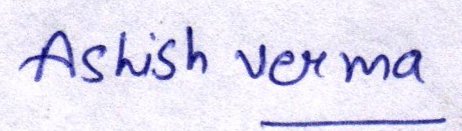 Ashish verma